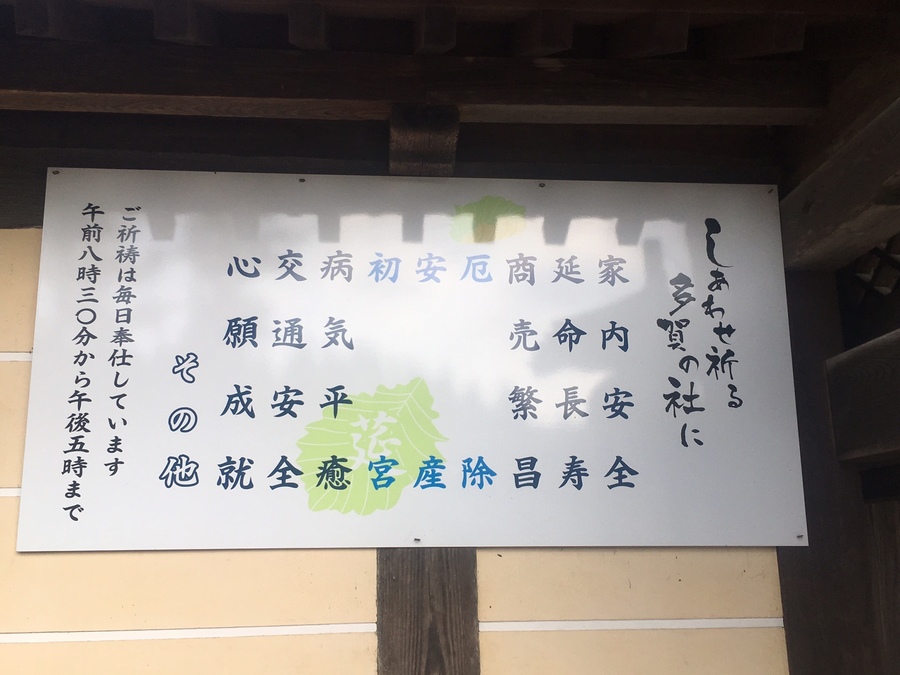 しあわせ祈る
多賀の社に
家内安全
延命長寿
商売繁昌
厄除
安産
初宮
病気平癒
交通安全
心願成就
その他
ご祈祷は毎日奉仕しています
午前八時三〇分から午後五時まで
莚